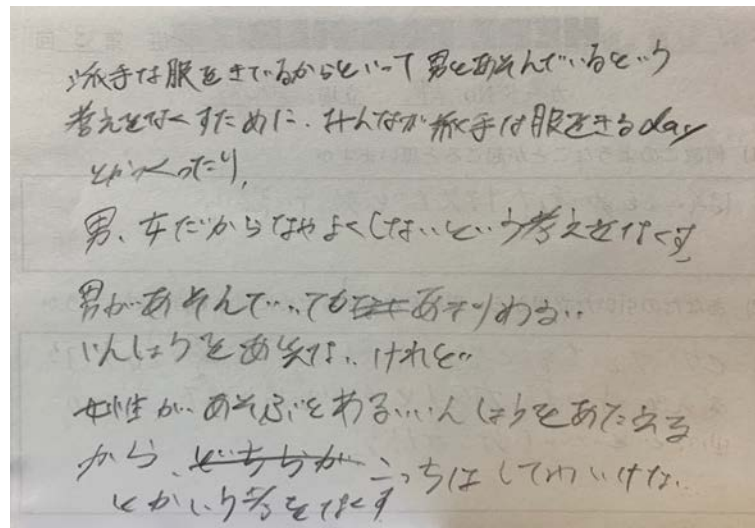 派手な服をきているからといって男とあそんでいるという
考えをなくすために、みんなが派手な服をきるday
とかつくったり、
男、女だからなかよくしないという考えをなくす
男があそんでいても あまりわるい
いんしょうをあたえない けれど
女性が、あそぶとわるいいんしょうをあたえる
から、どちらが こっちはしてわいけない
とかいう をなくす